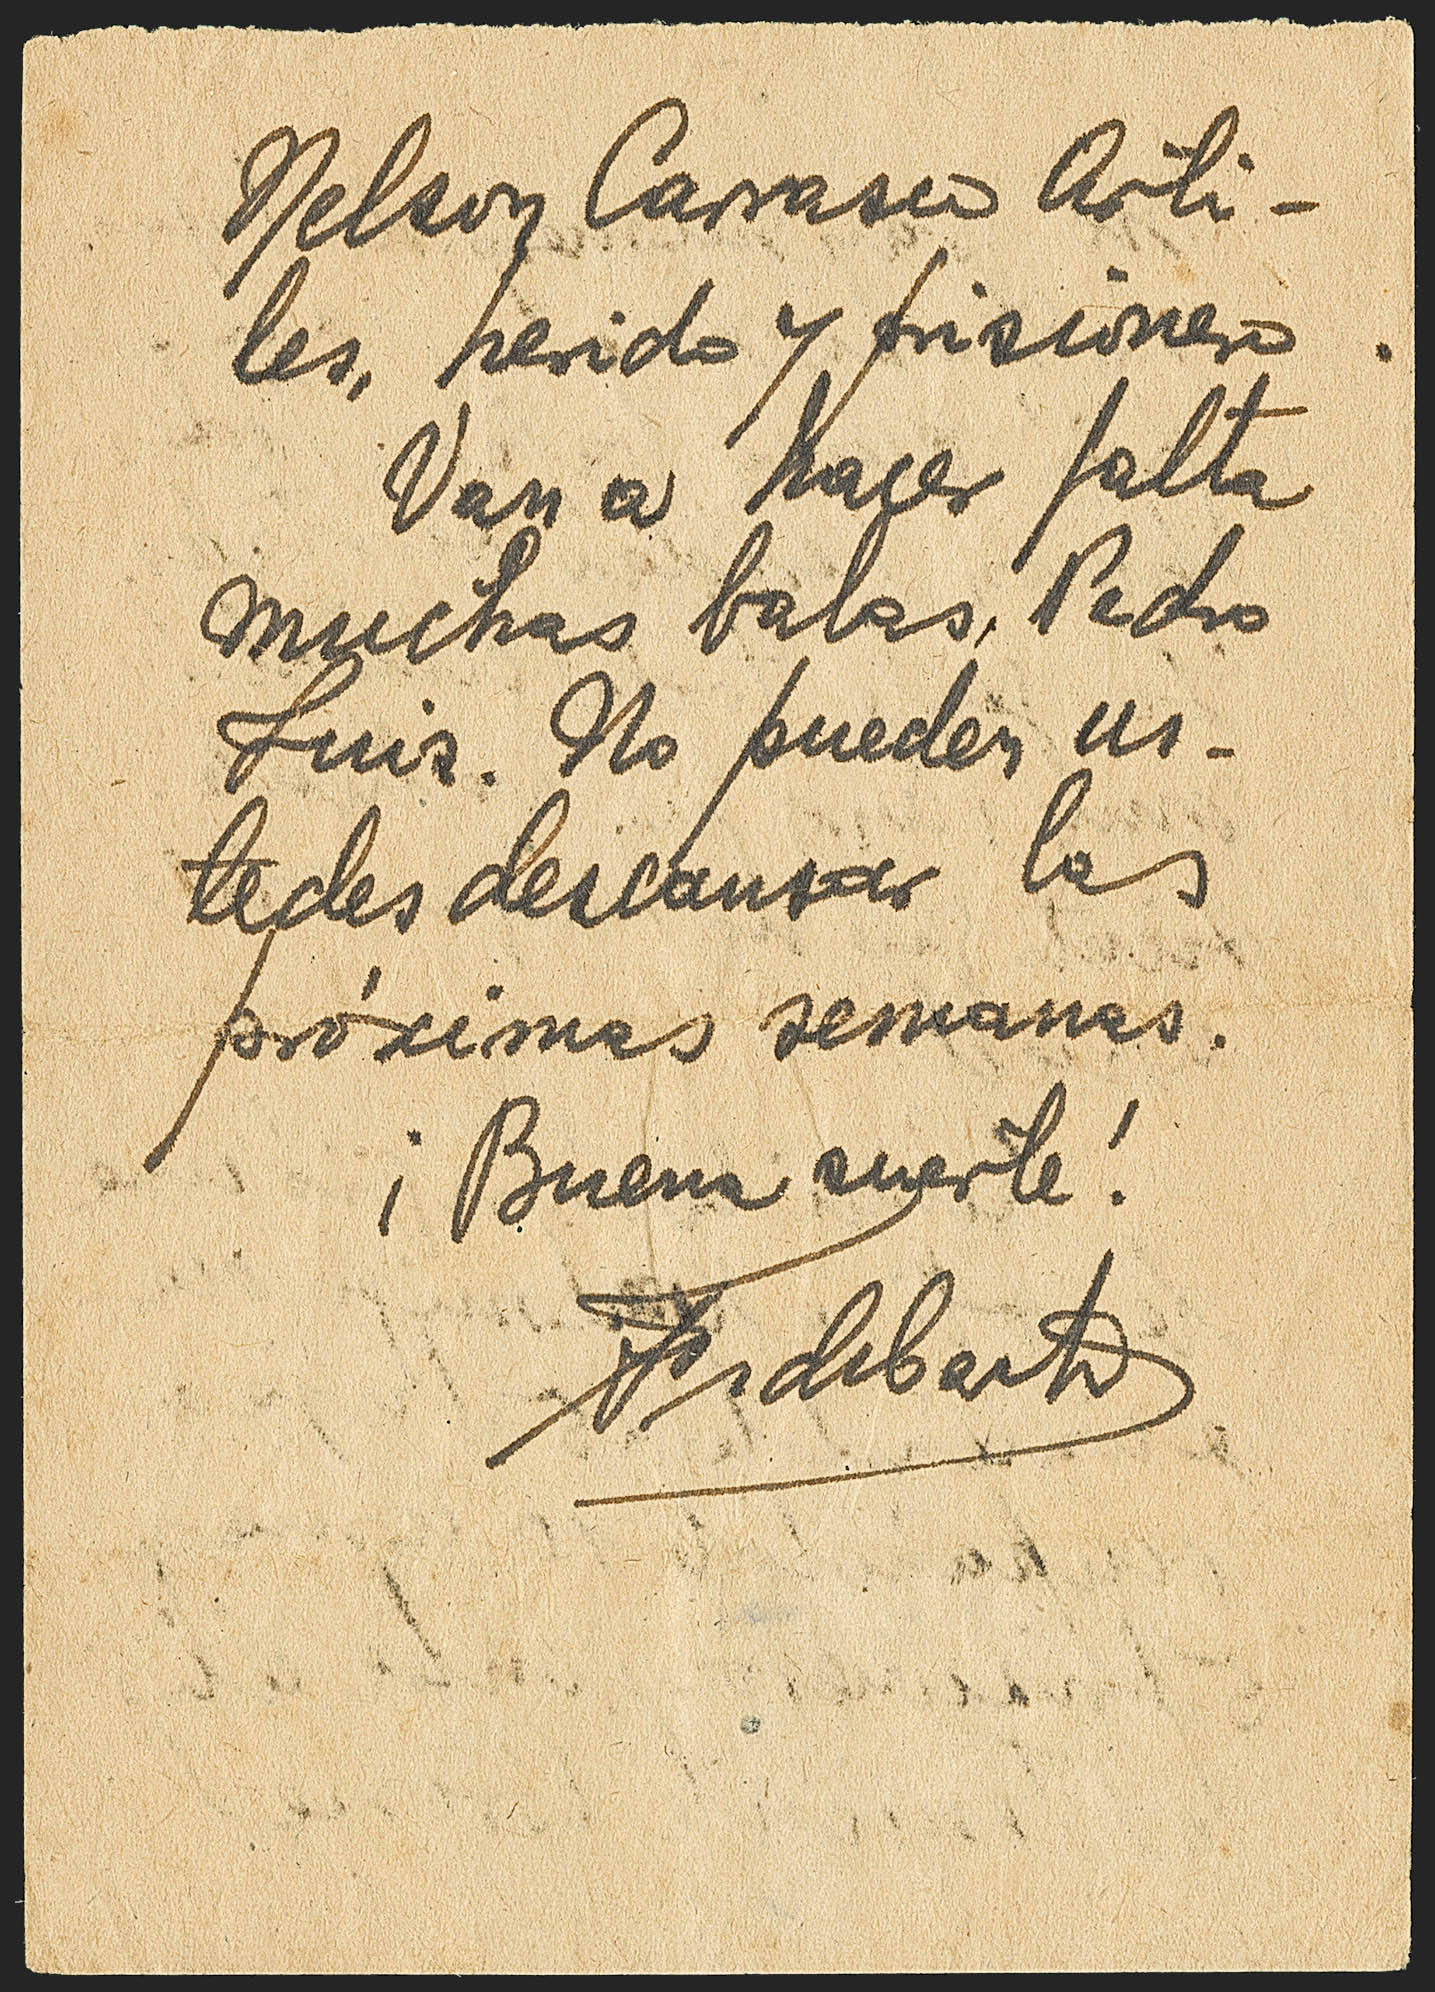 Nelson Carrasco Arti-
les, herido y prisionero.
Van a hacer falta
muchas balas, Pedro
Luis. No pueden us-
tedes descansar las
próximas semanas.
¡Buena suerte!